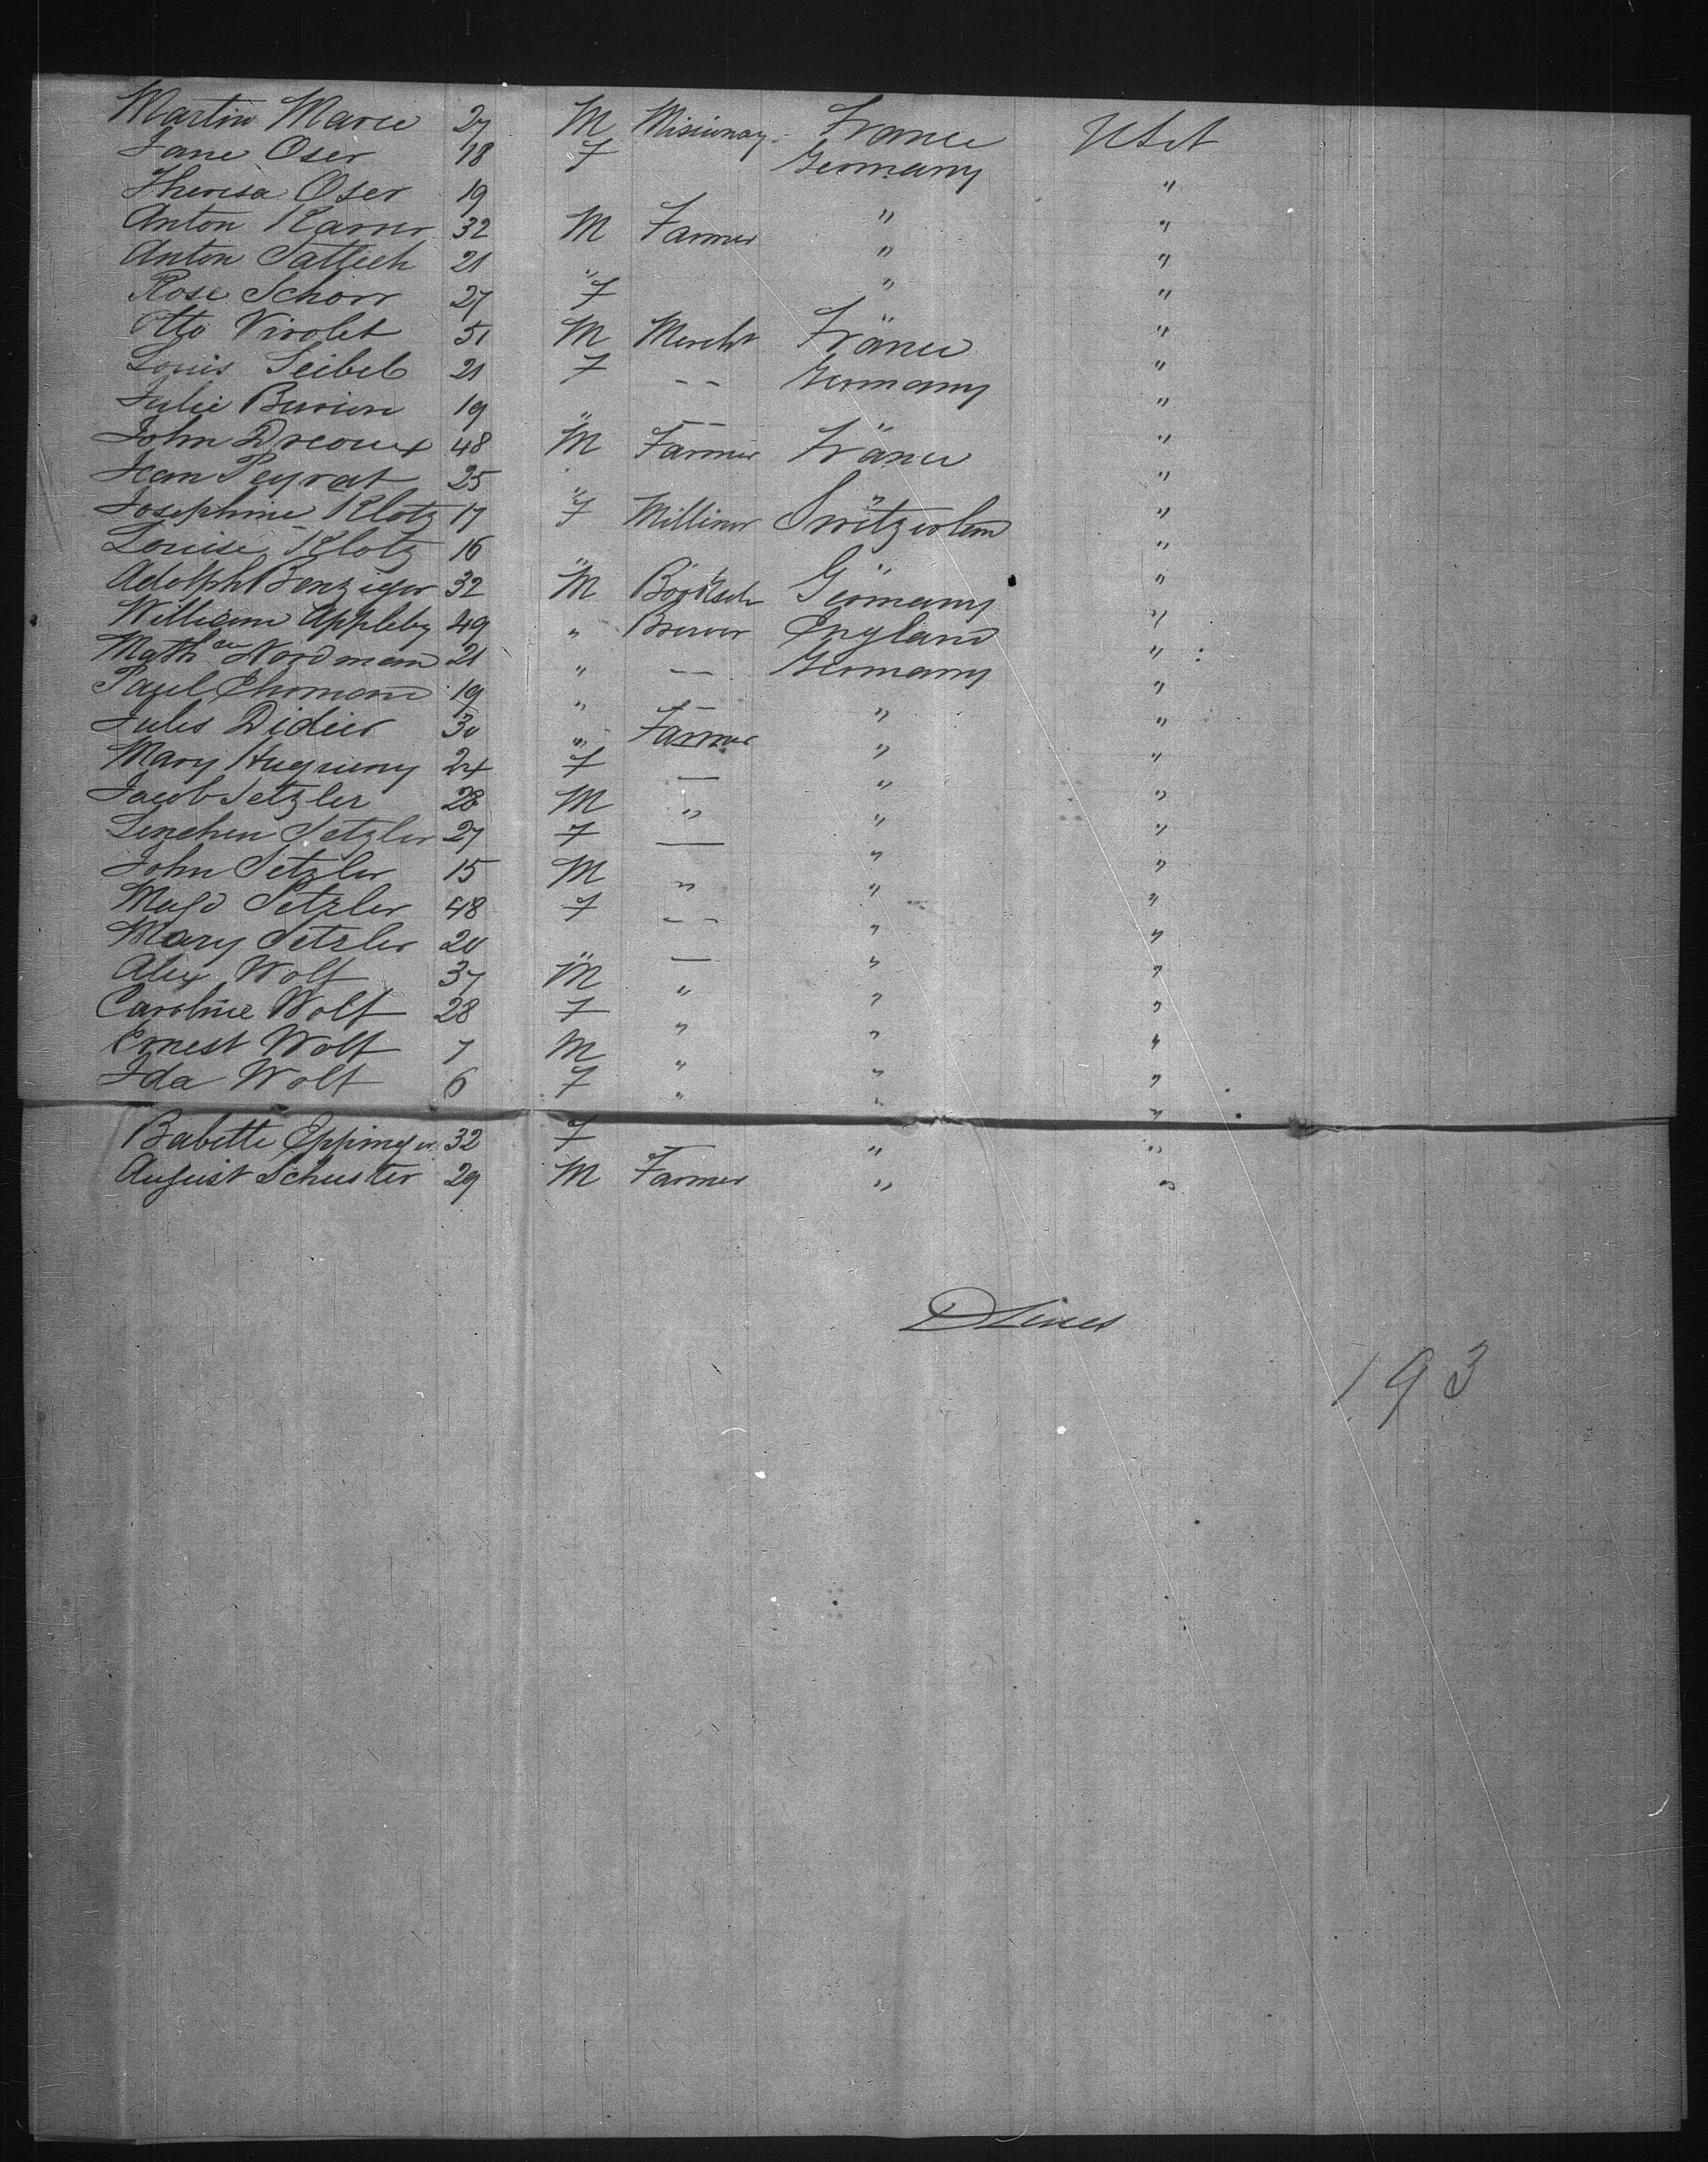 Martin Marie 27 M Missionay France USA
Jane Oser 18 F Germany "
Theresa Oser 19 " " "
Anton Karrer 32 M Farmer " "
Anton Sattich 21 " " "
Rose Schorr 27 F " "
Otto Virolet 51 M Mercht France "
Louis Seibel 21 F -- Germany "
Julie Burion 19 " -- " "
John Drcoux 48 M Farmer France "
Jean Peyrat 25 " "
Josephine Klotz 17 F Milliner Switzerlan "
Louise Klotz 16 " " "
Adolph Benziger 32 M Germany "
William Appleby 49 " Brewer England "
Math Nordmann 21 " — Germany "
Paul Ehrmann 19 " — " "
Jules Didier 30 " Farmer " "
Mary Hugueny 24 F — " "
Jacob Setzler 28 M " " "
Lenchen Setzler 27 F — " "
John Setzler 15 M " " "
Magd Setzler 48 F -- " "
Mary Setzler 20 " — " "
Alex Wolf 37 M " " "
Caroline Wolf 28 F " " "
Ernest Wolf 7 M " " "
Ida Wolf 6 F " " "
Babette Eppinger 32 F " "
August Schuster 29 M Farmer " "
193